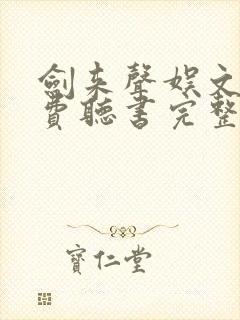 劍来聲娱文
費聽書完整
寶仁堂